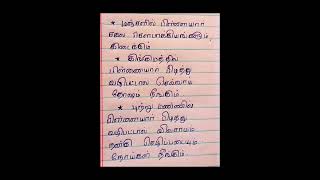 * மஞ்சளில் பிள்ளையார்
சகல சௌபாக்கியங்களும்,
கிடைக்கும்
* குங்குமத்தில்
பிள்ளையார் பிடித்து
வழிபட்டால் செவ்வாய்
தோஷம் நீங்கும்
* புற்று மண்ணில்
பிள்ளையார் பிடித்து
வழிபட்டால் விவசாயம்
நன்கு செழிப்படையும்
நோய்கள் நீங்கும்